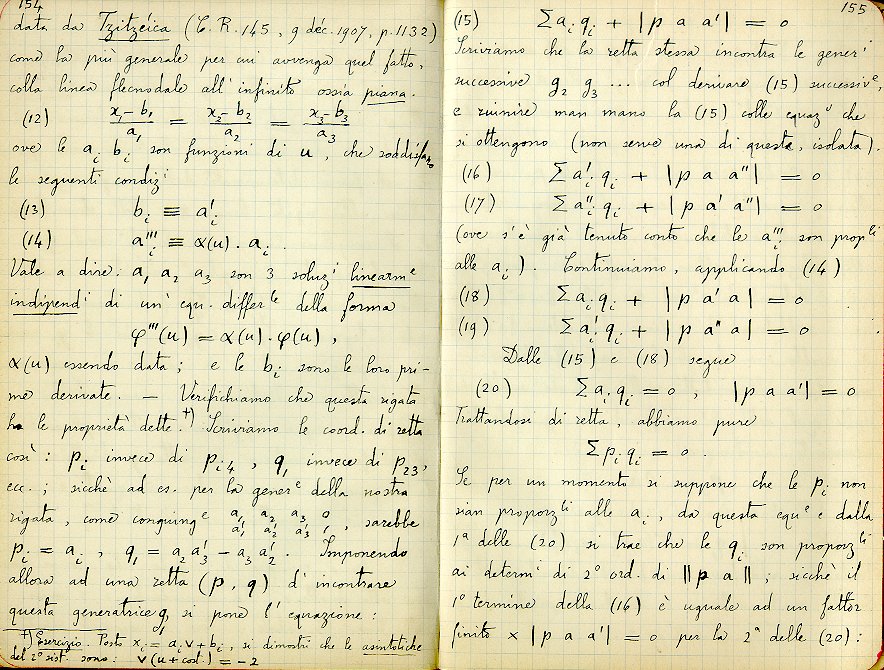 154
data da Tzitzéica (C. R. 145, 9 déc. 1907, p. 1132)
come la più generale per cui avvenga quel fatto,
colla linea flecnodale all'infinito ossia piana.
(12) x₁-b₁/a₁ = x₂-b₂/a₂ = x₃-b₃/a₃
ove le aᵢ bᵢ son funzioni di u, che soddisfano
le seguenti condizⁱ
(13) bᵢ ≡ a'ᵢ
(14) a'''ᵢ ≡ α(u). aᵢ .
Vale a dire: a₁ a₂ a₃ son 3 soluzⁱ linearmᵉ
indipendⁱ di un' equ. differˡᵉ della forma
φ'''(u) = α(u). φ(u) ,
α(u) essendo data; e le bᵢ sono le loro pri-
me derivate. — Verifichiamo che questa rigata
ha le proprietà dette.†) Scriviamo le coord. di retta
così: pᵢ invece di pᵢ₄ , q₁ invece di p₂₃,
ecc.; sicchè ad es. per la generᵉ della nostra
rigata, come congiungᵉ a₁ a₂ a₃ 0 , sarebbe
a'₁ a'₂ a'₃ 1
pᵢ = aᵢ , q₁ = a₂ a'₃ - a₃ a'₂ . Imponendo
allora ad una retta (p, q) d'incontrare
questa generatrice g, si pone l'equazione:
†) Esercizio. Posto xᵢ = aᵢv + bᵢ, si dimostri che le asintotiche
del 2º sist. sono: v(u + cost.) = -2
155
(15) Σaᵢqᵢ + |p a a'| = 0
Scriviamo che la retta stessa incontra le generⁱ
successive g₂ g₃ ... col derivare (15) successivᵉ,
e riunire man mano la (15) colle equazⁱ che
si ottengono (non serve una di queste, isolata).
(16) Σa'ᵢqᵢ + |p a a''| = 0
(17) Σa''ᵢqᵢ + |p a' a''| = 0
(ove s'è già tenuto conto che le a'''ᵢ son propˡⁱ
alle aᵢ). Continuiamo, applicando (14)
(18) Σaᵢqᵢ + |p a' a| = 0
(19) Σa'ᵢqᵢ + |p a'' a| = 0
Dalle (15) e (18) segue
(20) Σaᵢqᵢ = 0 ; |p a a'| = 0
Trattandosi di retta, abbiamo pure
Σpᵢqᵢ = 0 .
Se per un momento si suppone che le pᵢ non
sian proporzˡⁱ alle aᵢ, da questa equᵉ e dalla
1ª delle (20) si trae che le qᵢ son proporzˡⁱ
ai determⁱ di 2º ord. di ||p a||; sicchè il
1º termine della (16) è uguale ad un fattor
finito × |p a a'| = 0 per la 2ª delle (20):